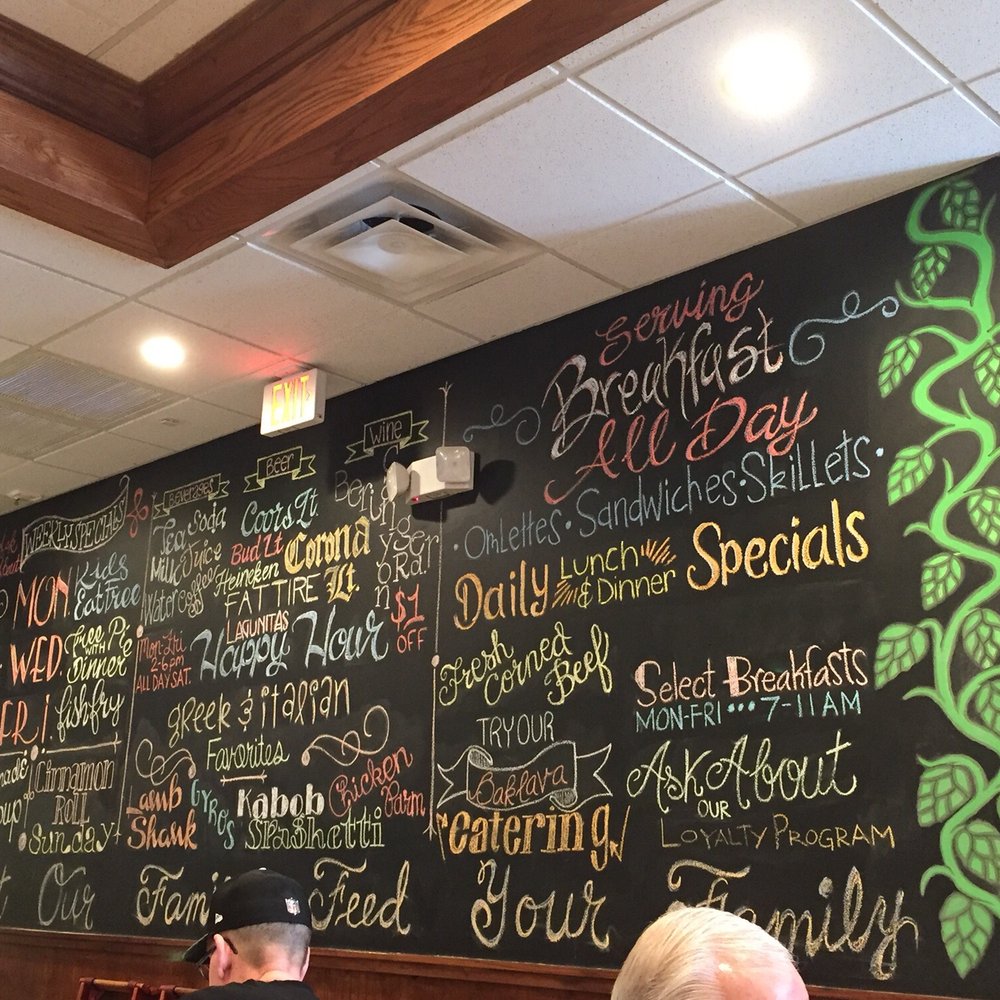 WEEKLY SPECIALS
MON.
Kids
Eat Free
WED.
Free Pie
WITH
Dinner
FRI
fish fry
Cinnamon
Roll
Sunday
BEVERAGES
Tea Soda
Milk Juice
Water Coffee
Beer
Coors Lt.
Bud Lt
Corona
Lt.
Heineken
FAT TIRE
LAGUNITAS
Wine
$1
OFF
Mon-Fri
2-6pm
ALL DAY SAT.
Happy Hour
greek & italian
Favorites
Lamb
Shank
Gyros
Kabob
Chicken
Parm
Spaghetti
EXIT
Serving
Breakfast
All Day
· Omlettes · Sandwiches · Skillets ·
Daily
Lunch
& Dinner
Specials
Fresh
Corned
Beef
TRY OUR
Baklava
catering
Select Breakfasts
MON-FRI ••• 7-11 AM
Ask About
OUR
LOYALTY PROGRAM
Our Family Feed Your Family